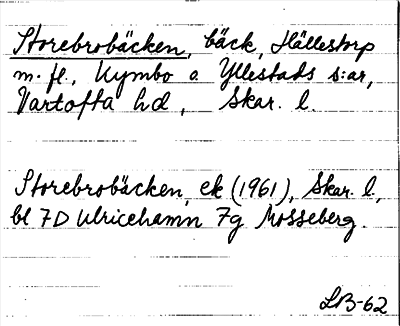 Storebrobäcken, bäck, Hällestorp
m. fl., Kymbo o Yllestads s:ar,
Vartofta hd, Skar. l.
Storebrobäcken, ek (1961), Skar. l,
bl 7D Ulricehamn 7g Mosseberg.
LB-62